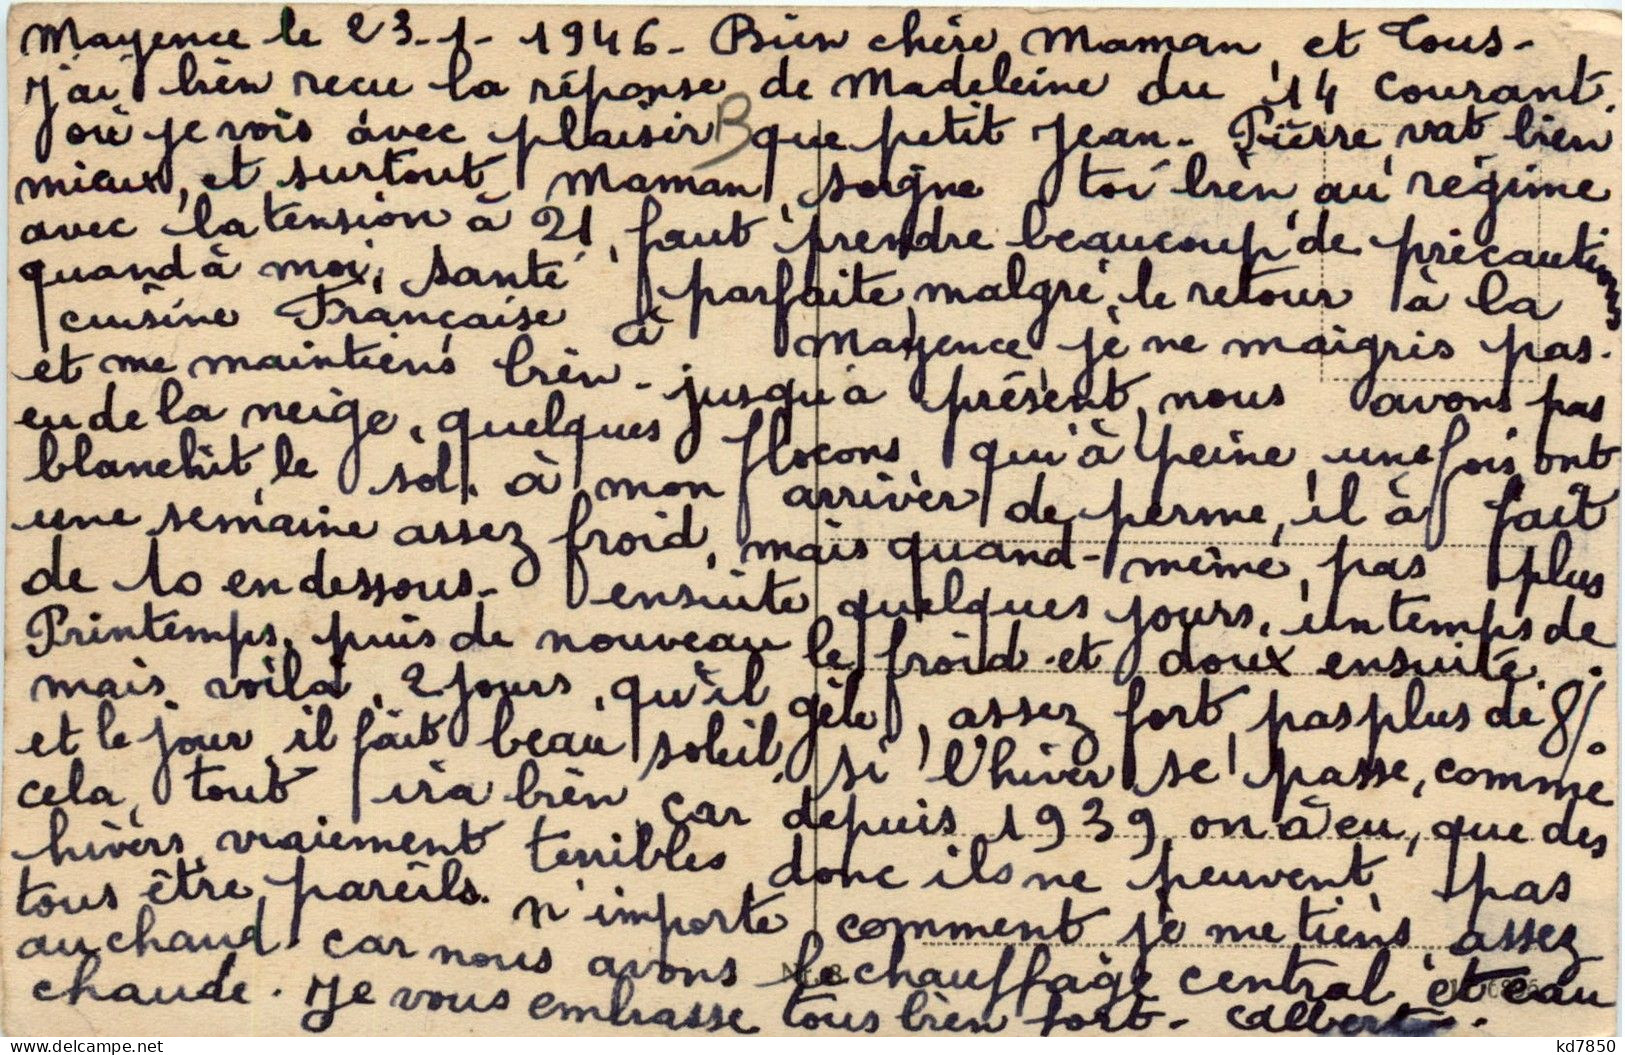 Mayence le 23-1-1946- Bien chère Maman, et Tous-
J'ai bien recu la réponse de Madeleine du 14 courant.
où je vois avec plaisir que petit Jean-Pierre, vat bien
mieux, et surtout Maman, soigne toi bien, au régime
avec la tension à 21, faut prendre beaucoup de précautions
quand à moi, santé parfaite, malgré, le retour à la
cuisine Française à Mayence je ne maigris pas.
et me maintiens bien- jusqu'à présent, nous avons pas
eu de la neige, quelques flocons, qu'à peine, une fois ont
blanchit, le sol. à mon arriver de perme, il à fait
une semaine assez froid, mais quand-même, pas plus
de 10 en dessous- ensuite quelques jours, un temps de
Printemps, puis de nouveau le froid et doux ensuite.
mais voilà, 2 jours, qu'il gèle, assez fort, pas plus de 8/.
et le jour il fait beau soleil, si l'hiver se passe, comme
cela, tout ira bien, car depuis 1939, on à eu, que des
hivers, vraiement terribles, donc ils ne peuvent, pas
tous être, pareils. n'importe comment je me tiens, assez
au chaud. car nous avons le chauffage central, et eau
chaude. Je vous embrasse tous bien fort- Albert-.
kd7850